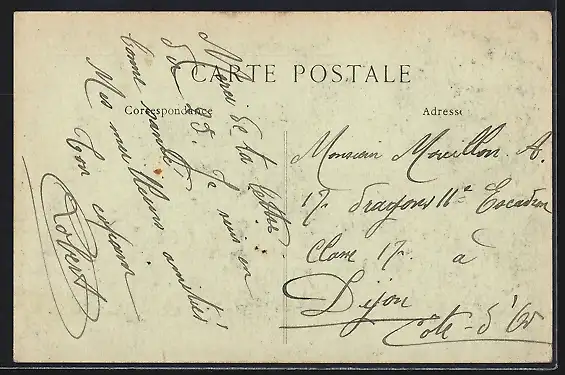 CARTE POSTALE
Correspondance
Adresse
Merci de ta lettre
du 23. Je suis en
bonne santé.
Mes meilleurs amitiés
Ton copain
Robert
Monsieur Mouillon A.
17e dragons 11e Escadron
Classe 17. à
Dijon
Côte-d'Or